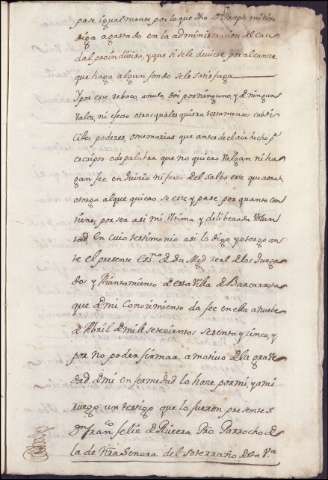 pase igualmente por lo que dho Dn Joseph mi hijo
diga a gastado en la administracion del cau
dal proindiviso, y que si se le deviere por alcanze
que haga algun fondo se le satisfaga
Y por este reboco, anulo, doi por ninguno, y de ningun
valor, ni efecto otros quales quiera testamentos cobdi
cilos, poderes, que antes de el aia hecho p.r
escripto o de palabra que no quiero valgan ni ha
gan fee en Juicio ni fuera del salbo este que aora
otorgo al que quiero se este y pase por quanto con
tiene, por ser asi mi ultima y deliberada volun
tad En cuio testimonio asi lo digo y otorgo an
te el presente Es.no de su Mgd real de los Juzga
dos y Aiuntamiento de esta Villa de Barcarrota
que de mi Conocimiento da fee en ella a nuebe
de Abril de mil setecientos setenta y cinco, y
por no poder firmar a motivo de la grabe
dad de mi enfermedad lo hace por mi, y a mi
ruego un testigo que lo fueron presentes
Dn Fran.co Felix de Rivera Pro Parrocho de
la de Ntra Señora del Soterraño de esta V.a